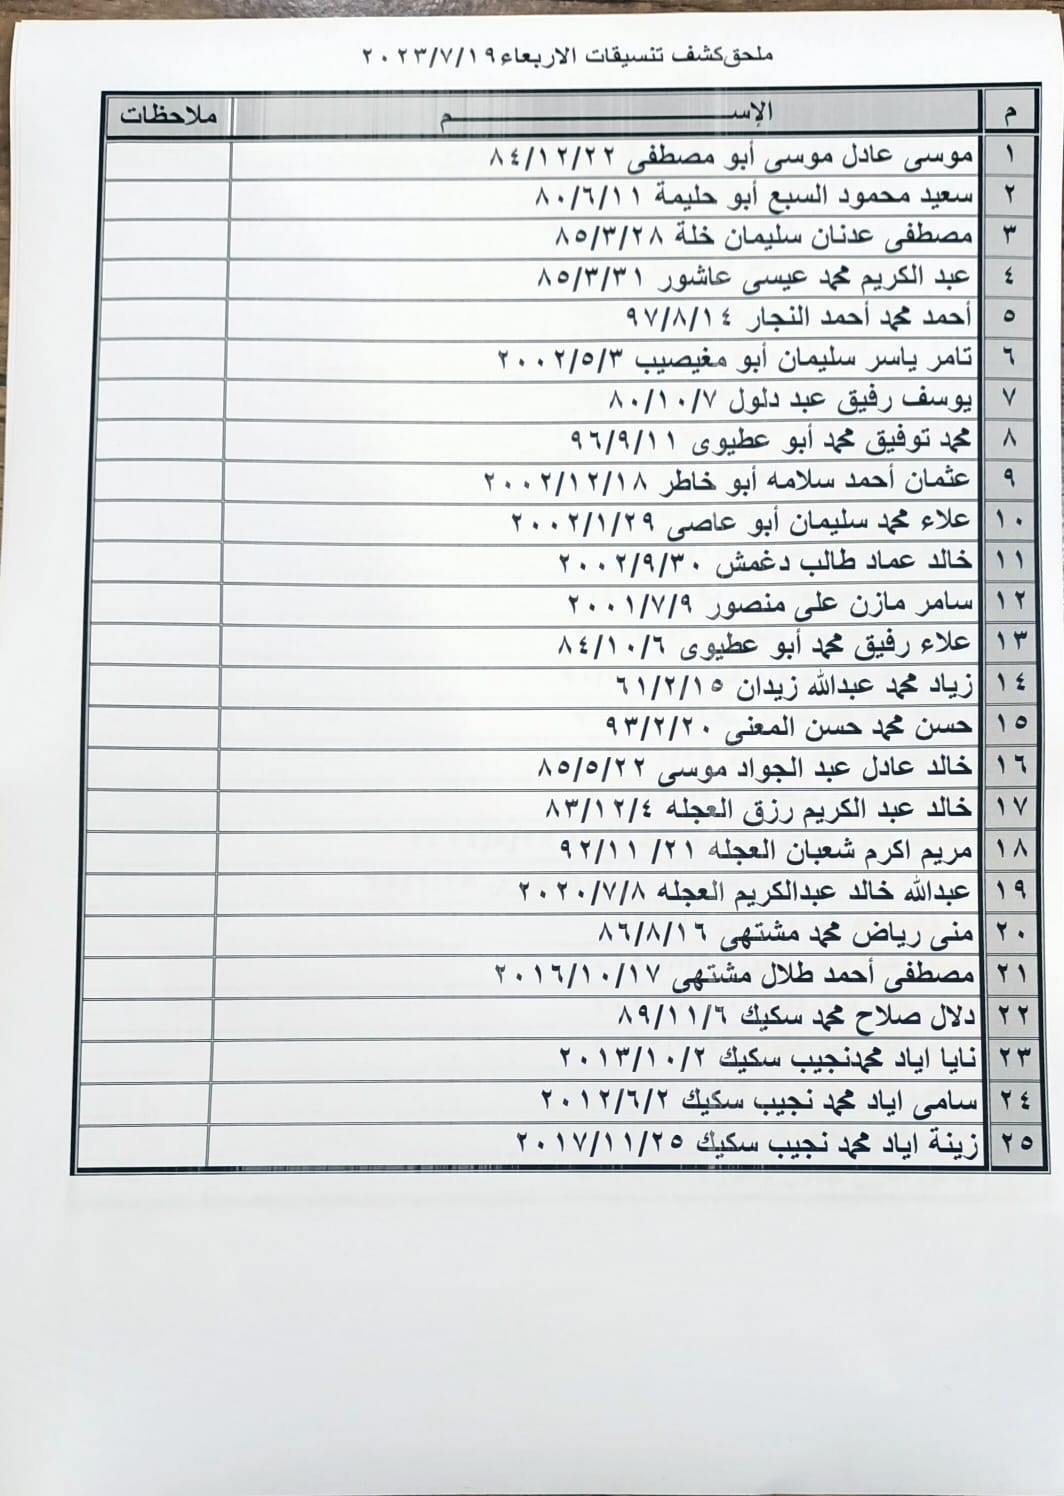 ملحق كشف تنسيقات الاربعاء ٢٠٢٣/٧/١٩
م الإســـــــم ملاحظات
١ موسى عادل موسى أبو مصطفى ٨٤/١٢/٢٢
٢ سعيد محمود السبع أبو حليمة ٨٠/٦/١١
٣ مصطفى عدنان سليمان خلة ٨٥/٣/٢٨
٤ عبد الكريم محمد عيسى عاشور ٨٥/٣/٣١
٥ أحمد محمد أحمد النجار ٩٧/٨/١٤
٦ تامر ياسر سليمان أبو مغيصيب ٢٠٠٢/٥/٣
٧ يوسف رفيق عبد دلول ٨٠/١٠/٧
٨ محمد توفيق محمد أبو عطيوى ٩٦/٩/١١
٩ عثمان أحمد سلامه أبو خاطر ٢٠٠٢/١٢/١٨
١٠ علاء محمد سليمان أبو عاصى ٢٠٠٢/١/٢٩
١١ خالد عماد طالب دغمش ٢٠٠٢/٩/٣٠
١٢ سامر مازن على منصور ٢٠٠١/٧/٩
١٣ علاء رفيق محمد أبو عطيوى ٨٤/١٠/٦
١٤ زياد محمد عبدالله زيدان ٦١/٢/١٥
١٥ حسن محمد حسن المعنى ٩٣/٢/٢٠
١٦ خالد عادل عبد الجواد موسى ٨٥/٥/٢٢
١٧ خالد عبد الكريم رزق العجله ٨٣/١٢/٤
١٨ مريم اكرم شعبان العجله ٩٢/١١/٢١
١٩ عبدالله خالد عبدالكريم العجله ٢٠٢٠/٧/٨
٢٠ منى رياض محمد مشتهى ٨٦/٨/١٦
٢١ مصطفى أحمد طلال مشتهى ٢٠١٦/١٠/١٧
٢٢ دلال صلاح محمد سكيك ٨٩/١١/٦
٢٣ نايا اياد محمدنجيب سكيك ٢٠١٣/١٠/٢
٢٤ سامى اياد محمد نجيب سكيك ٢٠١٢/٦/٢
٢٥ زينة اياد محمد نجيب سكيك ٢٠١٧/١١/٢٥